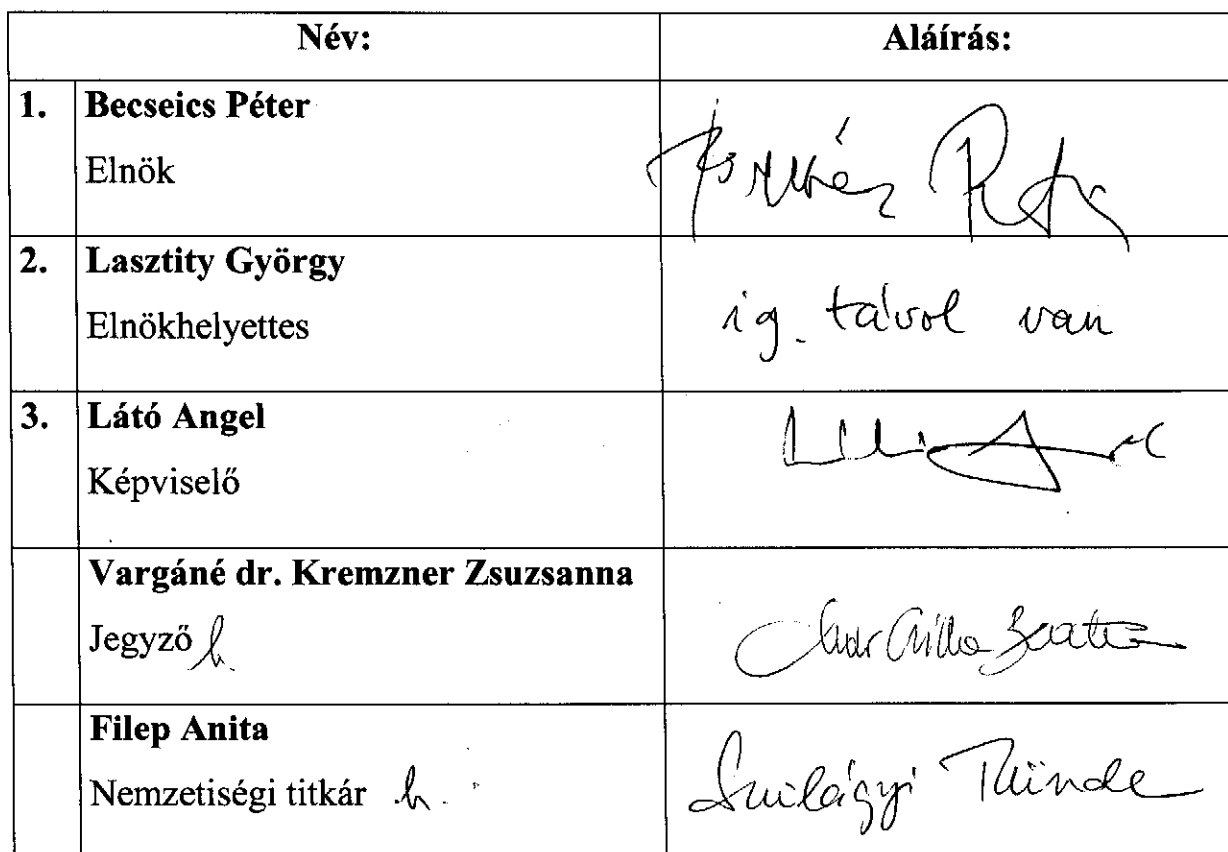 Név: Aláírás:
1. Becseics Péter
Elnök
2. Lasztity György
Elnökhelyettes
ig. távol van
3. Látó Angel
Képviselő
Vargáné dr. Kremzner Zsuzsanna
Jegyző h.
Filep Anita
Nemzetiségi titkár h.
Szilágyi Tünde